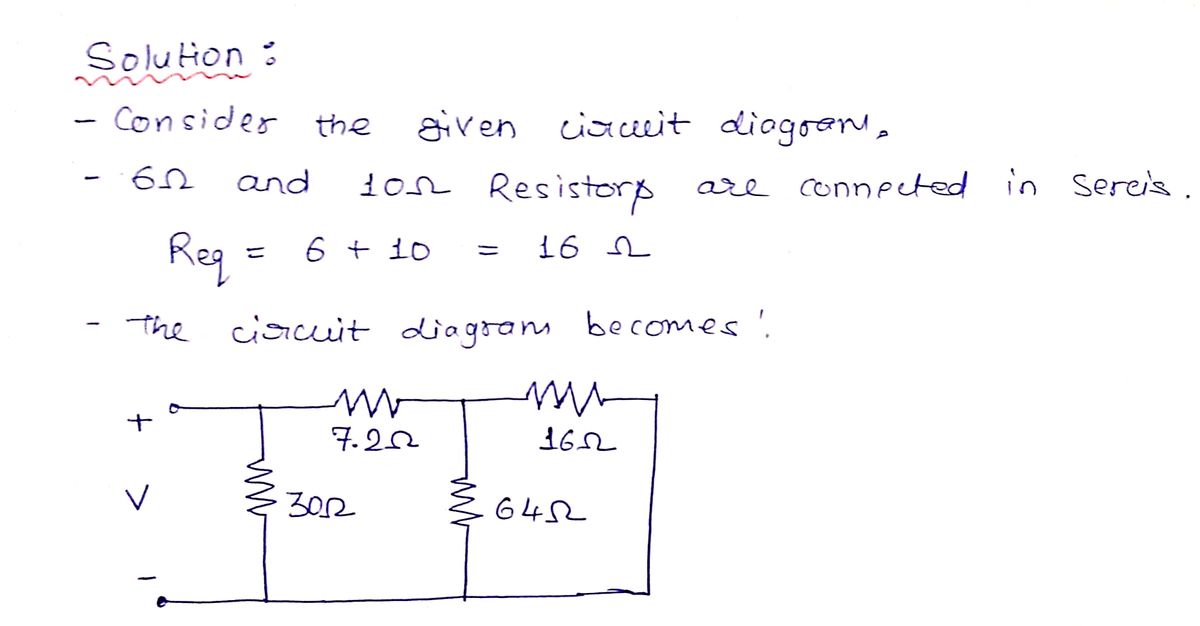 Solution :
- Consider the given circuit diagram.
- 6Ω and 10Ω Resistors are connected in Sereis.
Req = 6 + 10 = 16 Ω
- The circuit diagram becomes :
+
7.2Ω
16Ω
V
30Ω
64Ω
-